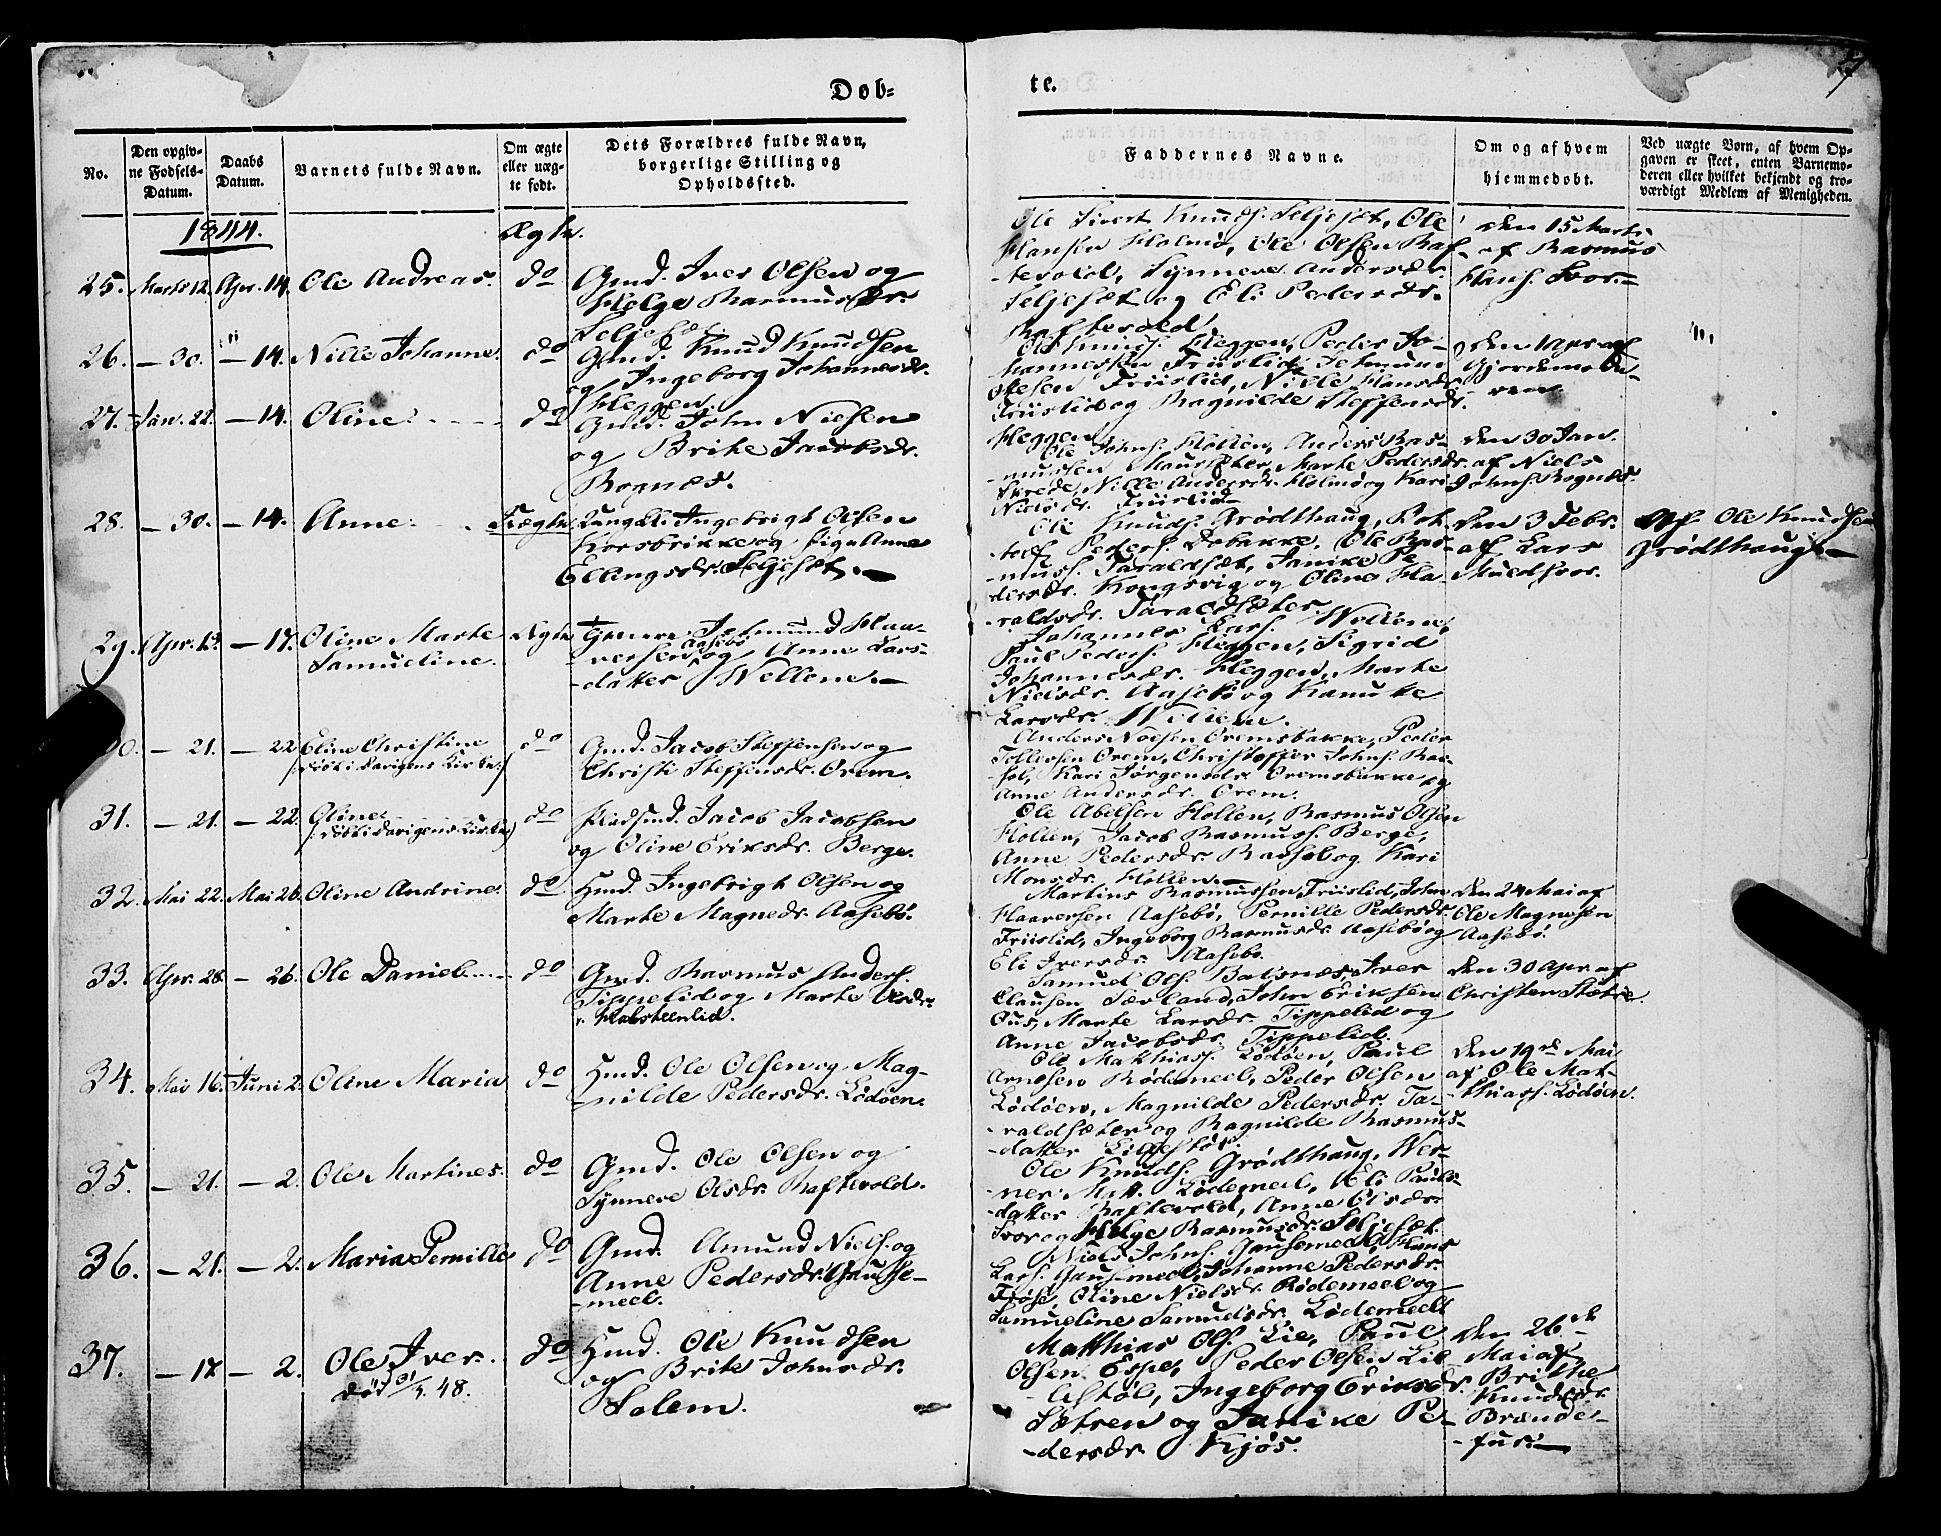 Døb-
te.
7
No.
Den opgiv-
ne Fødsels-
Datum.
Daabs
Datum.
Barnets fulde Navn.
Om ægte
eller uæg-
te født.
Dets Forældres fulde Navn,
borgerlige Stilling og
Opholdssted.
Faddernes Navne.
Om og af hvem
hjemmedøbt.
Ved uægte Børn, af hvem Op-
gaven er skeet, enten Barnemo-
deren eller hvilket bekjendt og tro-
værdigt Medlem af Menigheden.
1844.
Ægte.
25. Marts 12. Apr. 14. Ole Andreas. do
Gmd. Iver Olsen og
Helge Rasmusdr.
Seljesæt.
Ole Sivert Knuds. Seljesæt, Ole
Hansen Holmø, Ole Olsen Raf-
tevold, Synneve Andersdr.
Seljesæt og Eli Pedersdr.
Raftevold.
den 15 Marts
af Rasmus
Hans. Svor.
26. – 30. – 14. Nille Johanne. do
Gmd. Knud Knudsen
og Ingeborg Johannesdr.
Heggen.
Ole Knuds. Heggen, Peder Jo-
hannessen Friislid, Jetmund
Olesen Friislid, Nille Hansdr.
Friislid og Ragnilde Steffensdr.
Heggen.
den 1 Apr. af
Gjordemode-
ren
27. Jan. 22. – 14. Oline. do
Gmd. John Nielsen
og Brite Jacobsdr.
Rognæs.
Ole Johns. Hollen, Anders Ras-
mussen Maursæter, Marte Pedersdr.
Skrede, Nille Andersdr. Holmø og Kari
Nielsdr. Friislid
den 30 Jan.
af Niels
Johns. Rognæs.
28. – 30. – 14. Anne. Uægte
Ungkl. Ingebrigt Olsen
Korsbrikke og Pige Anne
Ellingsdr. Seljesæt.
Ole Knuds. Grødthaug,
Peders. Debakke, Ole Ras-
muss. Taraldsæt, Janike Pe-
dersdr. Kongsvig og Oline Ha-
raldsdr. Taraldsæter.
den 3 Febr.
af Lars
Muldsvor.
Ole Knudsen
Grødthaug.
29. Apr. 13. – 17. Oline Marte
Samueline.
Ægte
Jetmund Haa-
versen Aasebø og Anne Lars-
datter Wellene.
Johannes Lars. Wellene,
Paul Peders. Heggen, Sigrid
Johannesdr. Heggen, Marte
Nielsdr. Aasebø og
Larsdr. Wellene.
– 21. – 22. Eline Christine
(døbt i Davigens Kirke)
do
Gmd. Jacob Steffensen og
Christi Steffensdr. Orem.
Anders Noesen Oremsbakke, Peder
Tollersen Orem, Christopher Johns.
Kari Jørgensdr. Oremsbakke og
Anne Andersdr. Orem.
31. – 21. – 22. Eline
(døbt i Davigens Kirke)
do
Pladsmd. Jacob Jacobsen
og Oline Eriksdr. Berge.
Ole Abelsen Hollen, Rasmus Olsen
Hollen, Jacob Rasmuss. Berge,
Anne Pedersdr. og Kari
Monsdr. Hollen.
32. Mai 22. Mai 26. Oline Andrine. do
Hmd. Ingebrigt Olsen og
Marte Magnedr. Aasebø.
Martins Rasmussen Friislid, John
Haaversen Aasebø, Pernille Pedersdr.
Friislid, Ingeborg Rasmusdr. Aasebø og
Eli Iversdr. Aasebø.
den 24 Mai af
Ole Magnesen
Aasebø.
33. Apr. 28. – 26. Ole Daniel do
Gmd. Rasmus Anders.
Tippelid og Marte Olsdr.
Halsteenlid.
Samuel Ols. Balsnæs, Iver
Clausen Sørland, John Eriksen
Ous, Marte Larsdr. Tippelid og
Anne Jacobsdr. Tippelid.
den 30 Apr. af
Christen
34. Mai 16. Juni 2. Oline Maria do
Hmd. Ole Olsen og Mag-
nilde Pedersdr. Lødøen.
Ole Matthiass. Lødøen, Paul
Arnesen Rødemeel, Peder Olsen
Lødøen, Magnilde Pedersdr. Ta-
raldsæter og Ragnilde Rasmus-
datter
den 19de Mai
af Ole Mat-
thiass. Lødøen.
35. – 21. – 2. Ole Martines. do
Gmd. Ole Olsen og
Synneve Olsdr. Raftevold.
Ole Knuds. Grødthaug, Wer-
ner Mat. Lødemeel, Eli Pauls-
datter Raftevold, Anne Olsdr.
Svor og Helge Rasmusdr. Seljesæt.
36. – 21. – 2. Maria Pernille do
Gmd. Amund Niels. og
Anne Pedersdr. Gausse-
meel.
Niels Johns. Gausemeel, Hans
Lars. Gausemeel, Johanne Pedersdr.
Frøse, Oline Nielsdr. Rødemeel og
Samueline Samuelsdr. Lødemeel
37. – 17 – 2. Ole Iver.
død 21/4. 48.
do
Hmd. Ole Knudsen
og Brite Johnsdr.
Solem.
Matthias Ols. Lie, Paul
Olsen Espe, Peder Olsen Lil-
lestøl, Ingeborg Eriksdr.
Sætren og Janike Pe-
dersdr. Kjøs.
den 26de
Mai af
Brithe
Knudsdr.
Brænde-